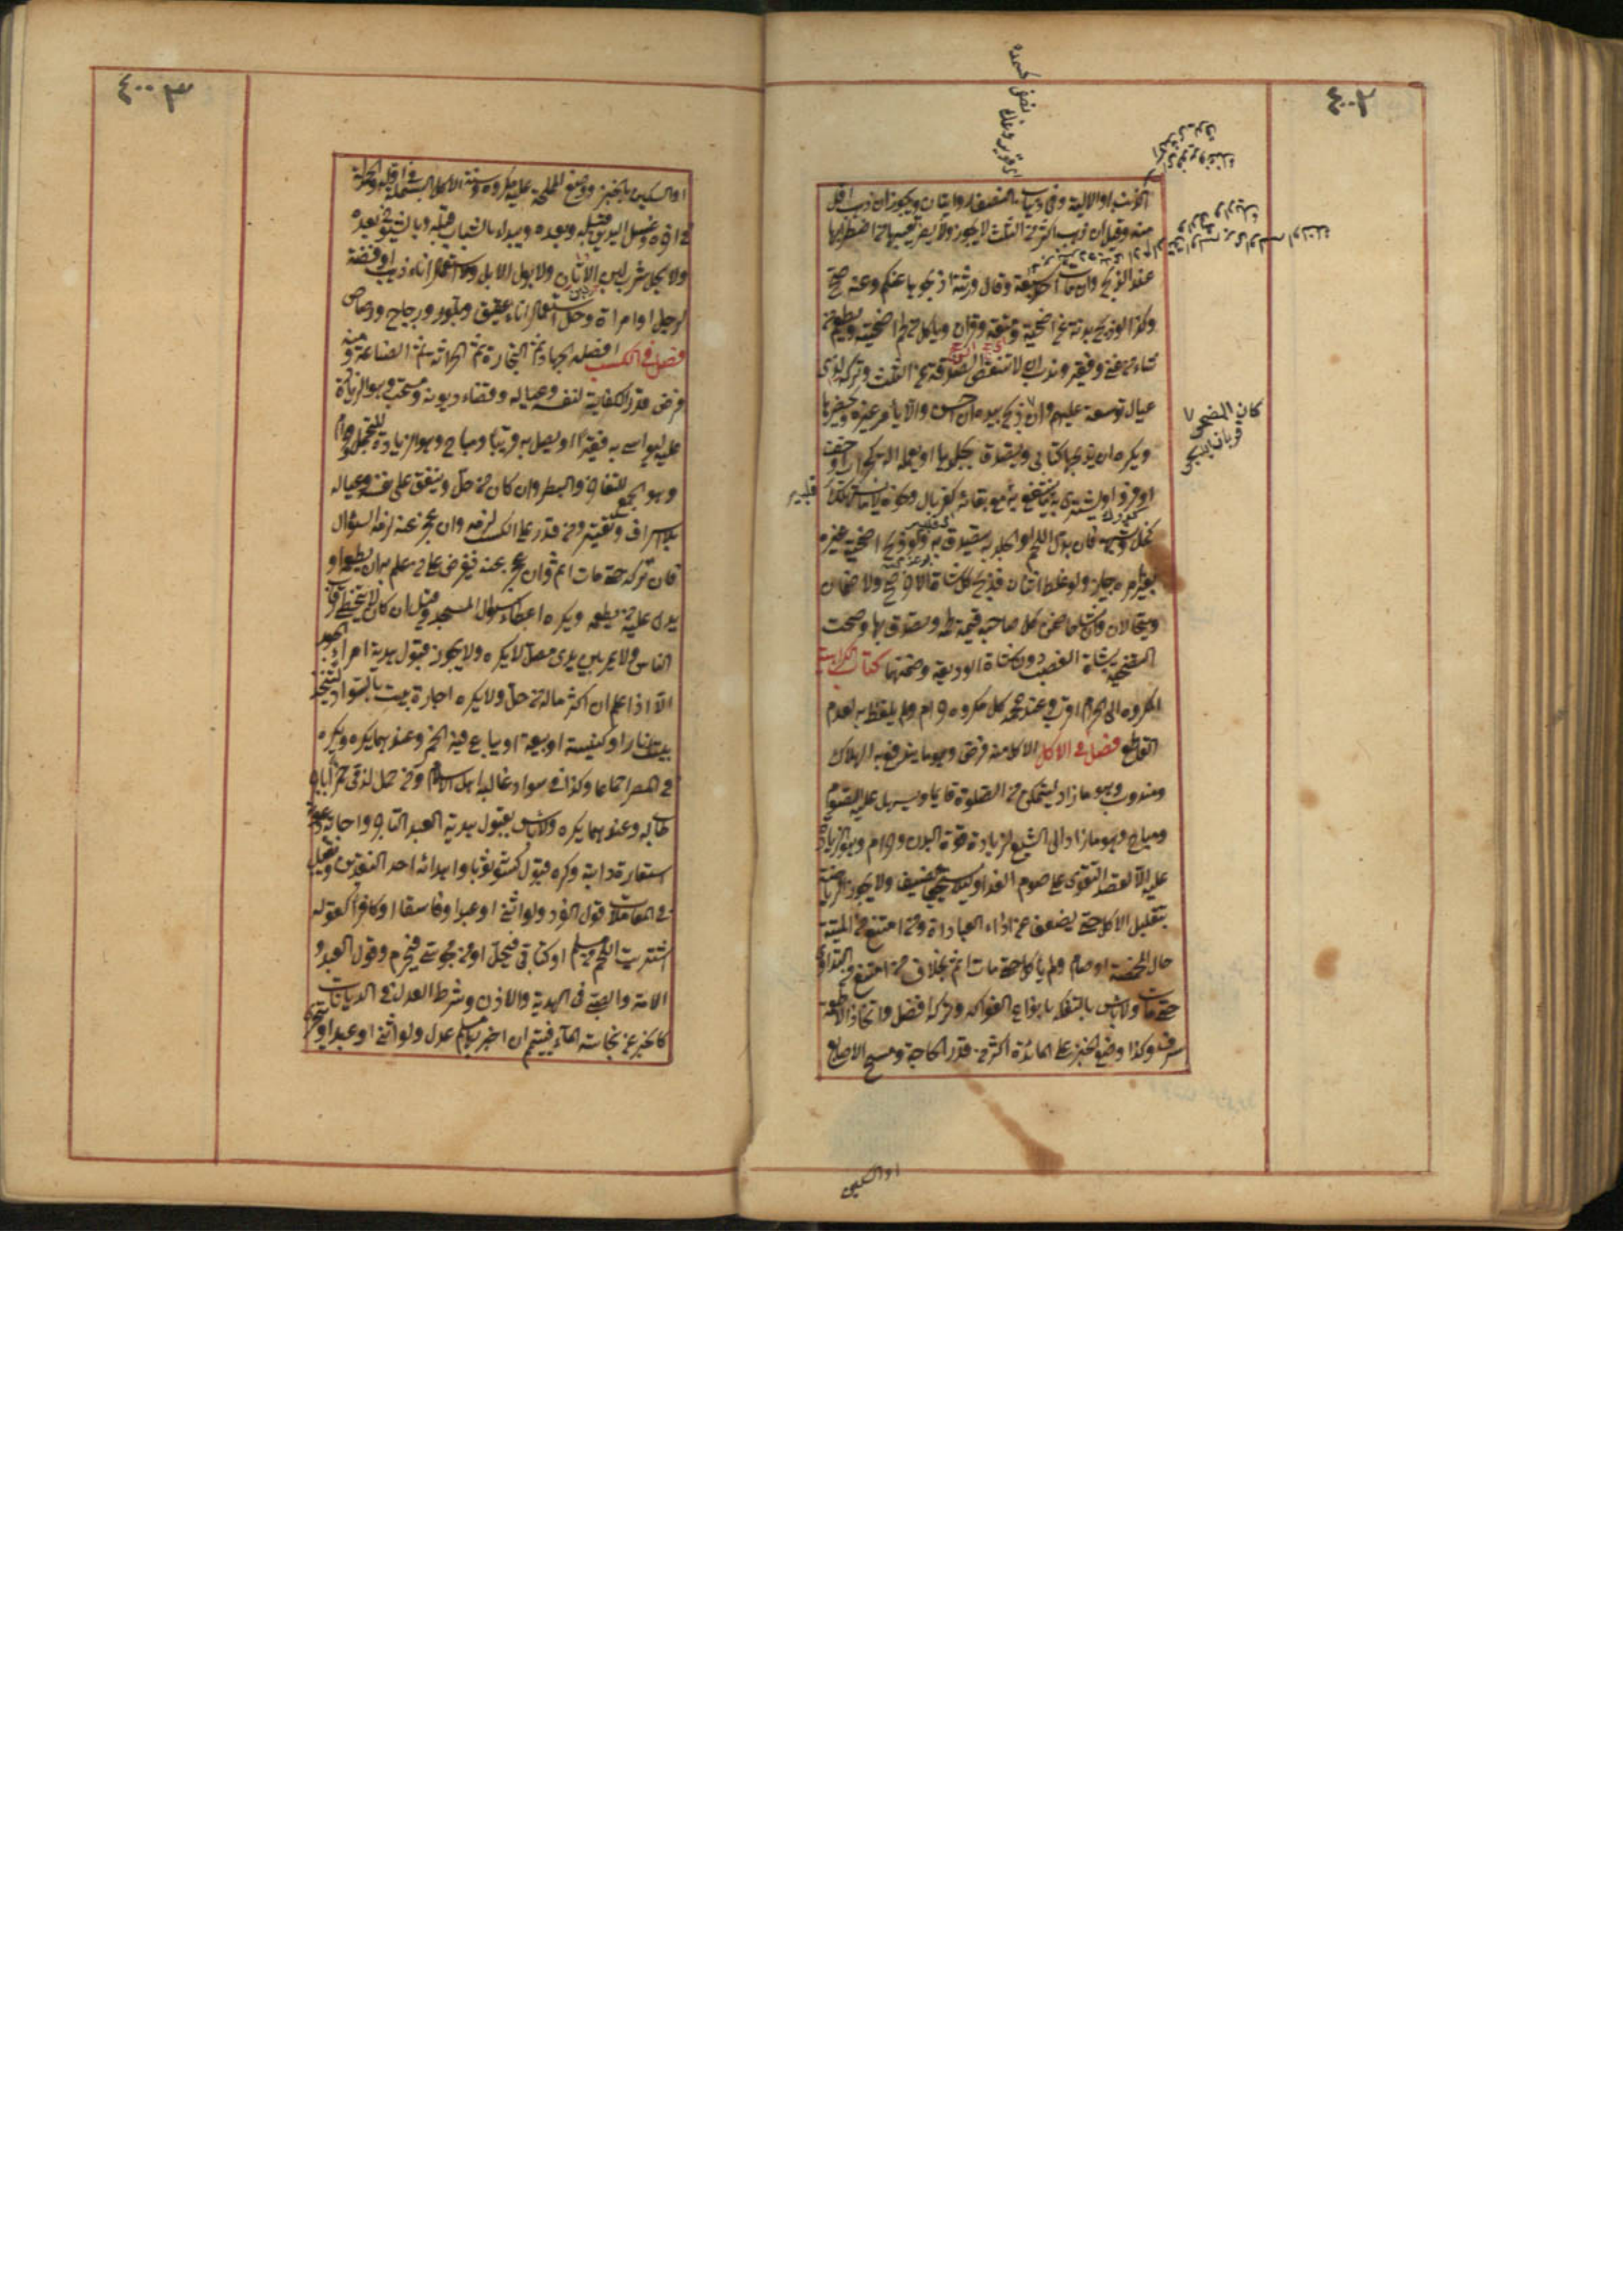 ٤٠٠٢
الاذن او الالية وفي ذهاب النصف روايتان ويجوز ان ذهب اقل
منه وقيل ان ذهب اكثر من الثلث لا يجوز ولا يضر تعيبها من اضطرابها
عند الذبح وان مات احد سبعة وقال ورثته اذبحوها عنكم وعنه صح
وكذا لو ذبح بدنة عن اضحية ومتعة وقران وياكل من لحم اضحيته ويطعم من
شاء من غني وفقير وندب ان لا تنقص الصدقة عن الثلث وتركه لذي
عيال توسعة عليهم وان يذبح بيده ان احسن والا يامر غيره ويحضرها
ويكره ان يذبحها كتابي ويتصدق بجلدها او يعمله آلة كجراب وخف
او فرو او يشتري به ما ينتفع به مع بقائه كغربال ونحوه لا ما يستهلك
كخل وشبهه فان بدل اللحم او الجلد به يتصدق به ولو ذبح اضحية غيره
بغير امره جاز ولو غلط اثنان فذبح كل شاة الاخر صح ولا ضمان
ويتحالان وان تشاحا ضمن كل صاحبه قيمة لحمه ويتصدق بها وصحت
التضحية بشاة الغصب دون شاة الوديعة وضمنها كتاب الكراهية
المكروه الى الحرام اقرب وعند محمد كل مكروه حرام ولم يلفظ به لعدم
القاطع فصل في الاكل الاكل منه فرض وهو ما يندفع به الهلاك
ومندوب وهو ما زاد ليتمكن من الصلوة قائما ويسهل عليه الصوم
ومباح وهو ما زاد الى الشبع لزيادة قوة البدن وحرام وهو الزيادة
عليه الا لقصد التقوى على صوم الغد او لئلا يستحي الضيف ولا يجوز الرياضة
بتقليل الاكل حتى يضعف عن اداء العبادة ومن امتنع من الميتة
حال المخمصة او صام ولم ياكل حتى مات اثم بخلاف من امتنع من التداوي
حتى مات ولا باس بالتفكه بانواع الفواكه وتركه افضل واتخاذ الاطعمة
سرف وكذا وضع الخبز على المائدة اكثر من قدر الحاجة ومسح الاصابع
كان المضحي
قربان ايديجي
او السكين
٤٠٠٣
او السكين بالخبز ووضع المملحة عليه مكروه وسنة الاكل البسملة في اوله والحمدلة
في اخره وغسل اليدين قبله وبعده ويبدا بالشباب قبله وبالشيوخ بعده
ولا يحل شرب لبن الاتان ولا بول الابل ولا استعمال اناء ذهب او فضة
لرجل او امراة وحل استعمال اناء عقيق وبلور وزجاج ورصاص
فصل في الكسب افضله الجهاد ثم التجارة ثم الحراثة ثم الصناعة ومنه
فرض قدر الكفاية لنفسه وعياله وقضاء ديونه ومستحب وهو الزيادة
عليه ليواسي به فقيرا او يصل به قريبا ومباح وهو الزيادة للتجمل وحرام
وهو الجمع للتفاخر والبطر وان كان من حل وينفق على نفسه وعياله
بلا اسراف ولا تقتير ومن قدر على الكسب لزمه وان عجز عنه لزمه السؤال
فان تركه حتى مات اثم وان عجز عنه يفرض على من علم به ان يطعمه او
يدل عليه من يطعمه ويكره اعطاء سؤال المسجد وقيل ان كان لا يتخطى رقاب
الناس ولا يمر بين يدي مصل لا يكره ولا يجوز قبول هدية امراء الجور
الا اذا علم ان اكثر ماله من حل ولا يكره اجارة بيت بالسواد ليتخذ
بيت نار او كنيسة او بيعة او يباع فيه الخمر وعندهما يكره ويكره
في المصر اجماعا وكذا في سواد غالبه اهل الاسلام ومن حمل لذمي خمرا باجر
طاب له وعندهما يكره ولا باس بقبول هدية العبد التاجر واجابة دعوته
واستعارة دابته وكره قبول كسوته ثوبا واهدائه احد النقدين ويقبل
في المعاملات قول الفرد ولو انثى او عبدا او فاسقا او كافرا كقوله
اشتريت اللحم من مسلم او كتابي فيحل او من مجوسي فيحرم وقول العبد و
الامة والصبي في الهدية والاذن وشرط العدل في الديانات
كالخبر عن نجاسة الماء فيتيمم ان اخبر بها مسلم عدل ولو انثى او عبدا ويتحرى